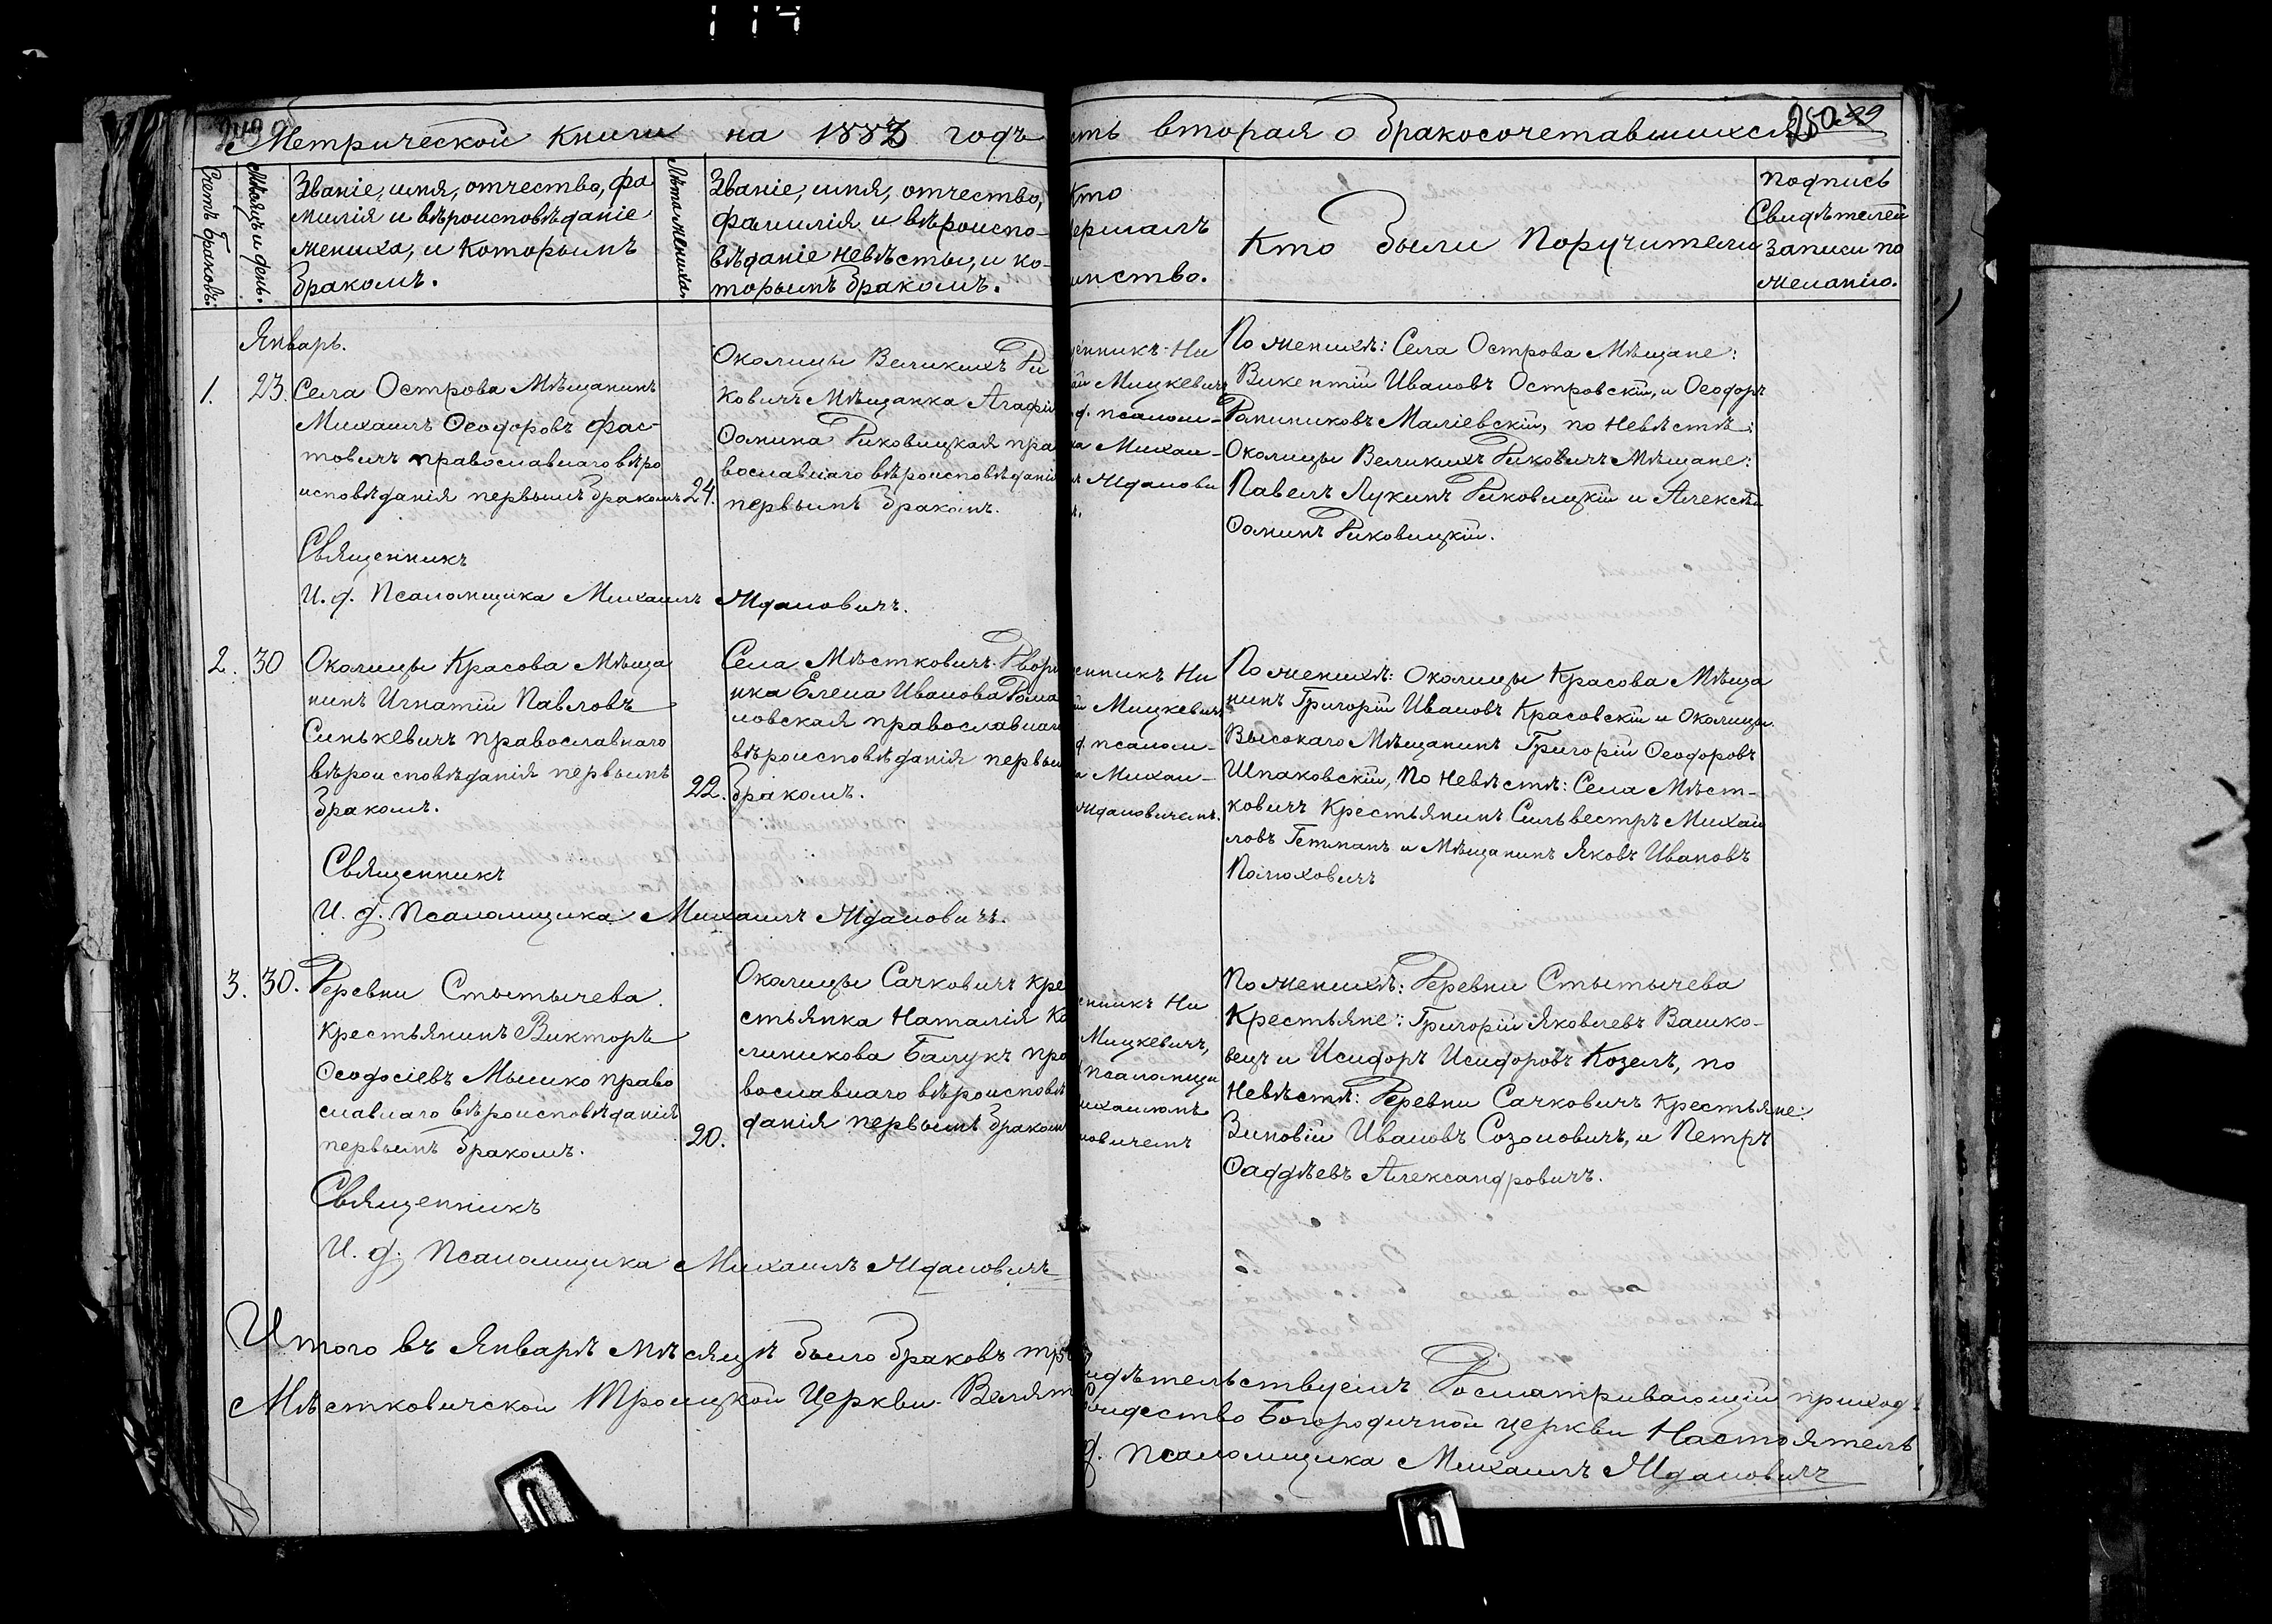 Метрической книги на 1883 годъ
сть вторая о бракосочетавшихся
250
Счетъ браковъ.
Мѣсяцъ и день.
Званіе, имя, отчество, фа
милія и вѣроисповѣданіе
жениха, и которымъ
бракомъ.
Лѣта жениха.
Званіе, имя, отчество,
фамилія и вѣроиспо-
вѣданіе невѣсты, и ко-
торымъ бракомъ.
Кто
ершалъ
инство.
Кто были поручители
Подпись
Свидѣтелей
записи по
желанію.
Январь.
1. 23. Села Острова Мѣщанинъ
Михаилъ Ѳеодоровъ Фас-
товичъ православнаго вѣро
исповѣданія первымъ бракомъ 24.
Околицы Великихъ Ри
ковичъ Мѣщанка Агафія
Ѳомина Риковицкая пра
вославнаго вѣроисповѣданія
первымъ бракомъ.
енникъ Ни
ай Мицкевичъ
д. псалом-
ка Михаи-
Ждановы
По женихѣ: Села Острова Мѣщане:
Викентій Ивановъ Островскій, и Ѳеодоръ
Маліевскій, по невѣстѣ:
Околицы Великихъ Риковичъ Мѣщане:
Павелъ Лукинъ Риковицкій и Алексѣй
Ѳоминъ Риковицкій.
Священникъ
И. д. Псаломщика Михаилъ Ждановичъ.
2. 30 Околицы Красова Мѣща
нинъ Игнатій Павловъ
Синькевичъ православнаго
вѣроисповѣданія первымъ
бракомъ. 22.
Села Мѣстковичъ Двори
нка Елена Иванова Рома
новская православнаго
вѣроисповѣданія первым
бракомъ.
енникъ Ни
ай Мицкевичъ,
д. псалом-
а Михаи-
Ждановичемъ.
По женихѣ: Околицы Красова Мѣща
нинъ Григорій Ивановъ Красовскій и Околицы
Высокаго Мѣщанинъ Григорій Ѳеодоровъ
Шпаковскій, По невѣстѣ: Села Мѣст-
ковичъ Крестьянинъ Сильвестръ Михай
ловъ Гетманъ и Мѣщанинъ Яковъ Ивановъ
Полюховичъ
Священникъ
И. д. Псаломщика Михаилъ Ждановичъ.
3. 30. Деревни Стытычева
Крестьянинъ Викторъ
Ѳеодосіевъ Мышко право
славнаго вѣроисповѣданія
первымъ бракомъ. 20.
Околицы Сачковичъ кре
стьянка Наталія Ка
линикова Балукъ пра
вославнаго вѣроисповѣ
данія первымъ бракомъ
енникъ Ни
Мицкевичъ,
псаломщи
ихаиломъ
новичемъ
По женихѣ: Деревни Стытычева
Крестьяне: Григорій Яковлевъ Вашко-
вецъ и Исидоръ Исидоровъ Козелъ, по
невѣстѣ: Деревни Сачковичъ Крестьяне:
Зиновій Ивановъ Созоновичъ, и Петръ
Ѳаддѣевъ Александровичъ.
Священникъ
И. д. Псаломщика Михаилъ Ждановичъ
Итого въ Январѣ мѣсяцѣ было браковъ три
идѣтельствуемъ Досматривающій приход
Мѣстковичской Троицкой Церкви
ождество Богородичной церкви Настоятель
д. псаломщика Михаилъ Ждановичъ